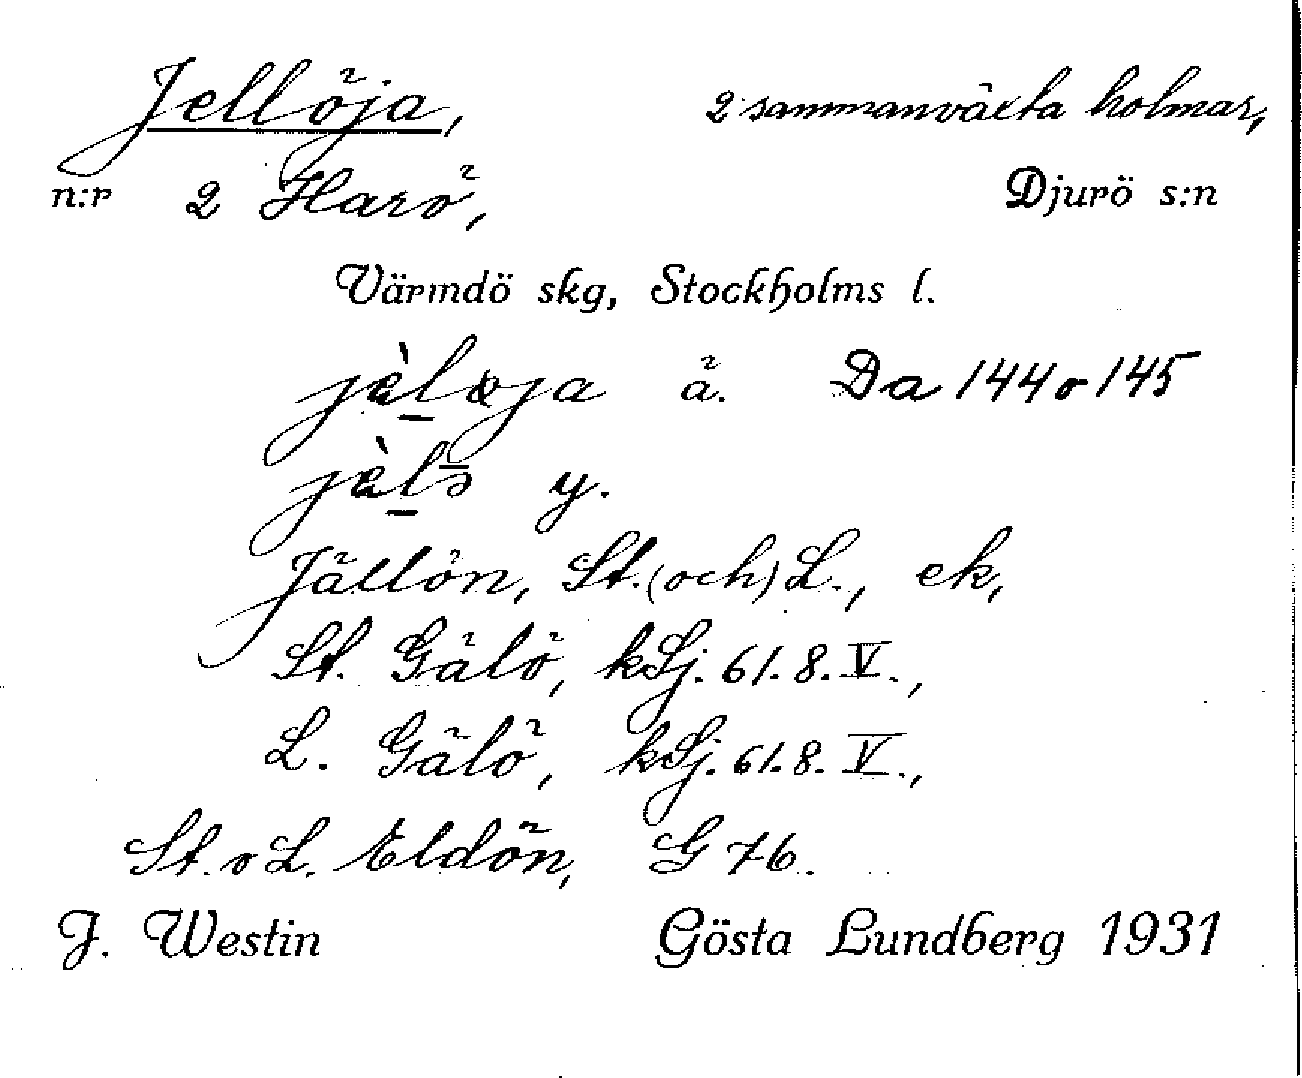 Jellöja, 2 sammanväxta holmar,
n:r 2 Harö, Djurö s:n
Värmdö skg, Stockholms l.
jèl̲øja ä. Da 144 o 145
jèl̲ɔ̄ y.
Jällön, St. (och) L., ek,
St. Gälö, kSj. 61. 8. V.,
L. Gälö, kSj. 61. 8. V.,
St. o L. Eldön, G 76.
J. Westin Gösta Lundberg 1931